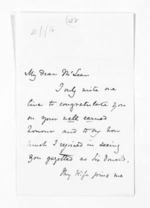 My dear McLean
I only write one
line to congratulate you
on your well earned
honour and to say how
much I rejoiced in seeing
you gazetted as Sir Donald.
My wife joins me